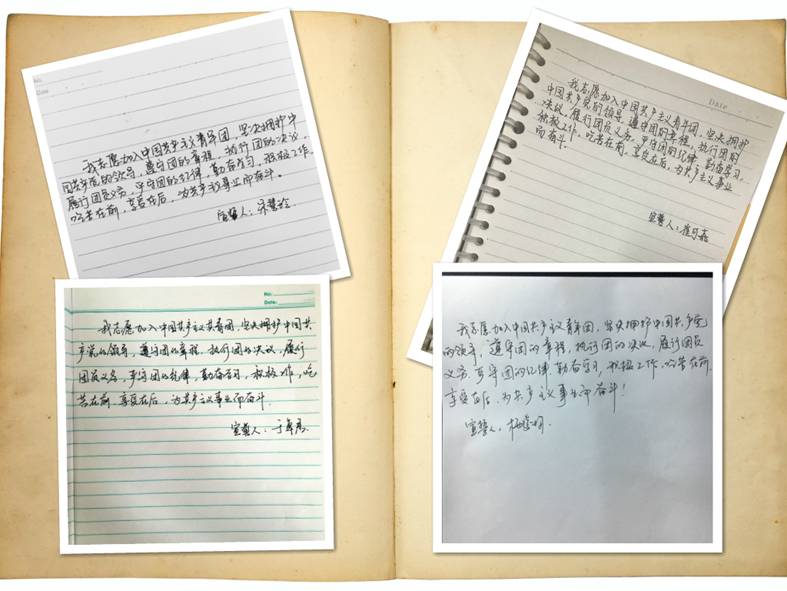 No:
Date
我志愿加入中国共产主义青年团，坚决拥护中
国共产党的领导，遵守团的章程，执行团的决议，
履行团员义务，严守团的纪律，勤奋学习，积极工作，
吃苦在前，享受在后，为共产主义事业而奋斗。
宣誓人：
Date
我志愿加入中国共产主义青年团，坚决拥护
中国共产党的领导，遵守团的章程，执行团的
决议，履行团员义务，严守团的纪律，勤奋学习，
积极工作，吃苦在前，享受在后，为共产主义事业
而奋斗。
宣誓人：崔可嘉
No:
Date:
我志愿加入中国共产主义共青团，坚决拥护中国共
产党的领导，遵守团的章程，执行团的决议，履行
团员义务，严守团的纪律，勤奋学习，积极工作，吃
苦在前，享受在后，为共产主义事业而奋斗。
宣誓人：于
我志愿加入中国共产主义青年团，坚决拥护中国共产党
的领导，遵守团的章程，执行团的决议，履行团员
义务，严守团的纪律，勤奋学习，积极工作，吃苦在前，
享受在后，为共产主义事业而奋斗！
宣誓人：杨